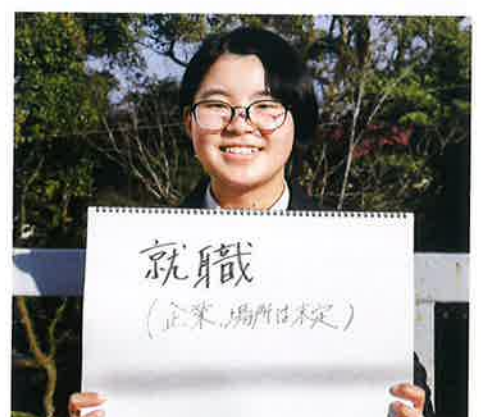 就職
(企業、場所は未定)